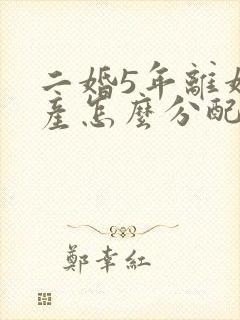 二婚5年離婚
產怎麼分配
鄭幸紅